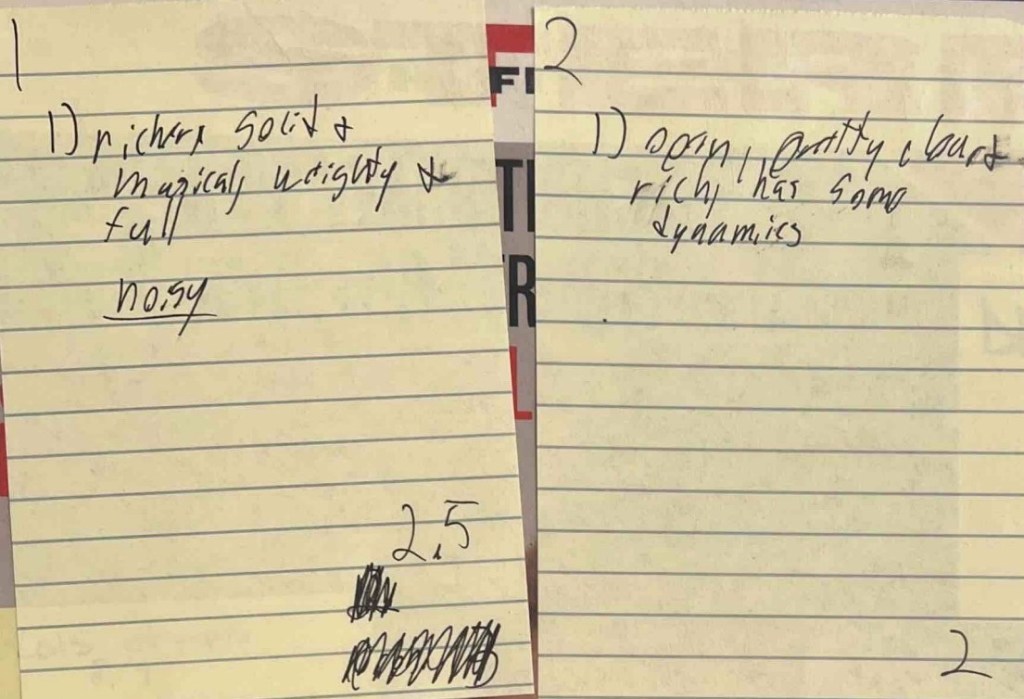 1
1) richer, solid &
magical, weighty &
full
noisy
2.5
FI
TI
R
L
2
1) open, pretty,
rich, has some
dynamics
2